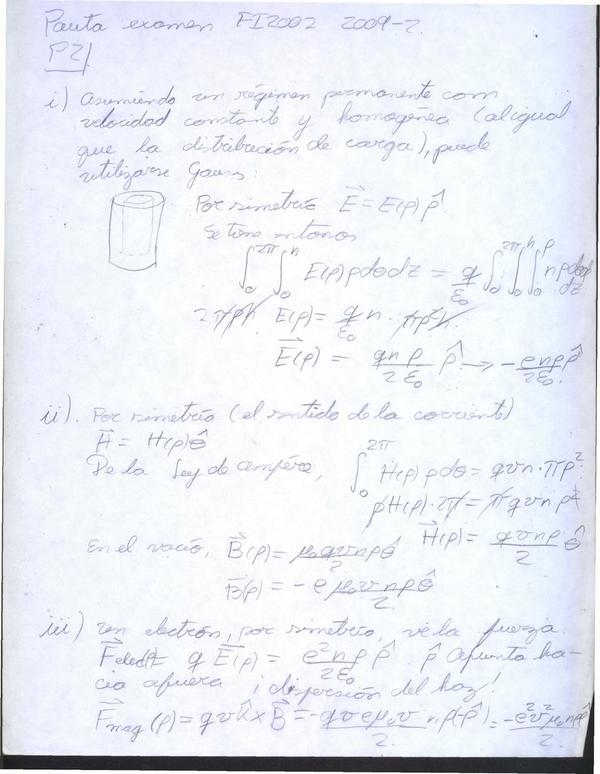 Pauta examen FI2002 2009-2.
P2/
i) Asumiendo un régimen permanente con
velocidad constante y homogénea (al igual
que la distribución de carga), puede
utilizarse Gauss:
Por simetría \vec{E} = E(ρ) \hat{ρ}
Se tiene entonces
∫_0^{2π} ∫_0^h E(ρ) ρ dθ dz = q/ε_0 ∫_0^{2π} ∫_0^h ∫_0^ρ n ρ dρ dθ dz
2πρh E(ρ) = q/ε_0 n · πρ²h.
\vec{E}(ρ) = qnρ/2ε_0 \hat{ρ} → -enρ/2ε_0 \hat{ρ}
ii). Por simetría (el sentido de la corriente)
\vec{H} = H(ρ)\hat{θ}
De la Ley de ampére, ∫_0^{2π} H(ρ) ρ dθ = qvn·πρ²
ρH(ρ)·2π = π qvn ρ²
\vec{H}(ρ) = qvnρ/2 \hat{θ}
En el vacío, \vec{B}(ρ) = μ_0qvnρ/2 \hat{θ}
\vec{B}(ρ) = -e μ_0vnρ/2 \hat{θ}
iii) un electrón, por simetría, ve la fuerza
\vec{F}elect = q \vec{E}(ρ) = e²nρ/2ε_0 \hat{ρ} \hat{ρ} apunta ha-
cia afuera ¡dispersión del haz!
\vec{F}mag(ρ) = qv\hat{k} × \vec{B} = -qveμ_0v/2 nρ(-\hat{ρ}) = -e²v²μ_0nρ/2 \hat{ρ}